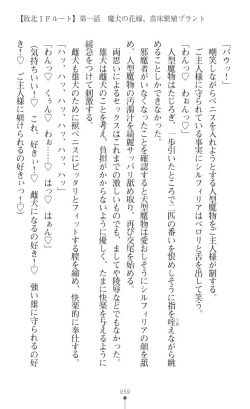 【敗北IFルート】第一話　魔犬の花嫁、苗床繁殖プラント
「バウッ！」
嘲笑しながらペニスを入れようとする人型魔物をご主人様が制する。
ご主人様に守られている事実にシルフィリアはペロリと舌を出して笑う。
人型魔物はたじろぎ、一歩引いたところで二匹の番いを恨めしそうに指を咥えながら眺めることしかできなかった。
邪魔者がいなくなったことを確認すると犬型魔物は愛おしそうにシルフィリアの顔を舐め、人型魔物の汚濁汁を綺麗サッパリ舐め取り、再び交尾を始める。
両思いによるセックスはこれまでの激しいものでも、ましてや陵辱などでもなかった。
雄犬は雌犬のことを考え、負担がかからないように優しく、たまに快楽を与えるようにがっついて刺激する。
雌犬も雄犬のために獣ペニスにピッタリとフィットする膣を締め、快楽的に奉仕する。
「ハッ、ハッ、ハッ、ハッ、ハッ、ハッ」
「わんっ♡　わぅん♡　わぅぅん♡」
「わんっ♡　わぅっ！♡　はぅぅ！♡」
（気持ちいい…！♡　これ、好きぃ！♡　雌犬になるの好き！♡　強い雄に守られるの好き！♡　ご主人様に躾けられるの好きぃっ！♡）
059